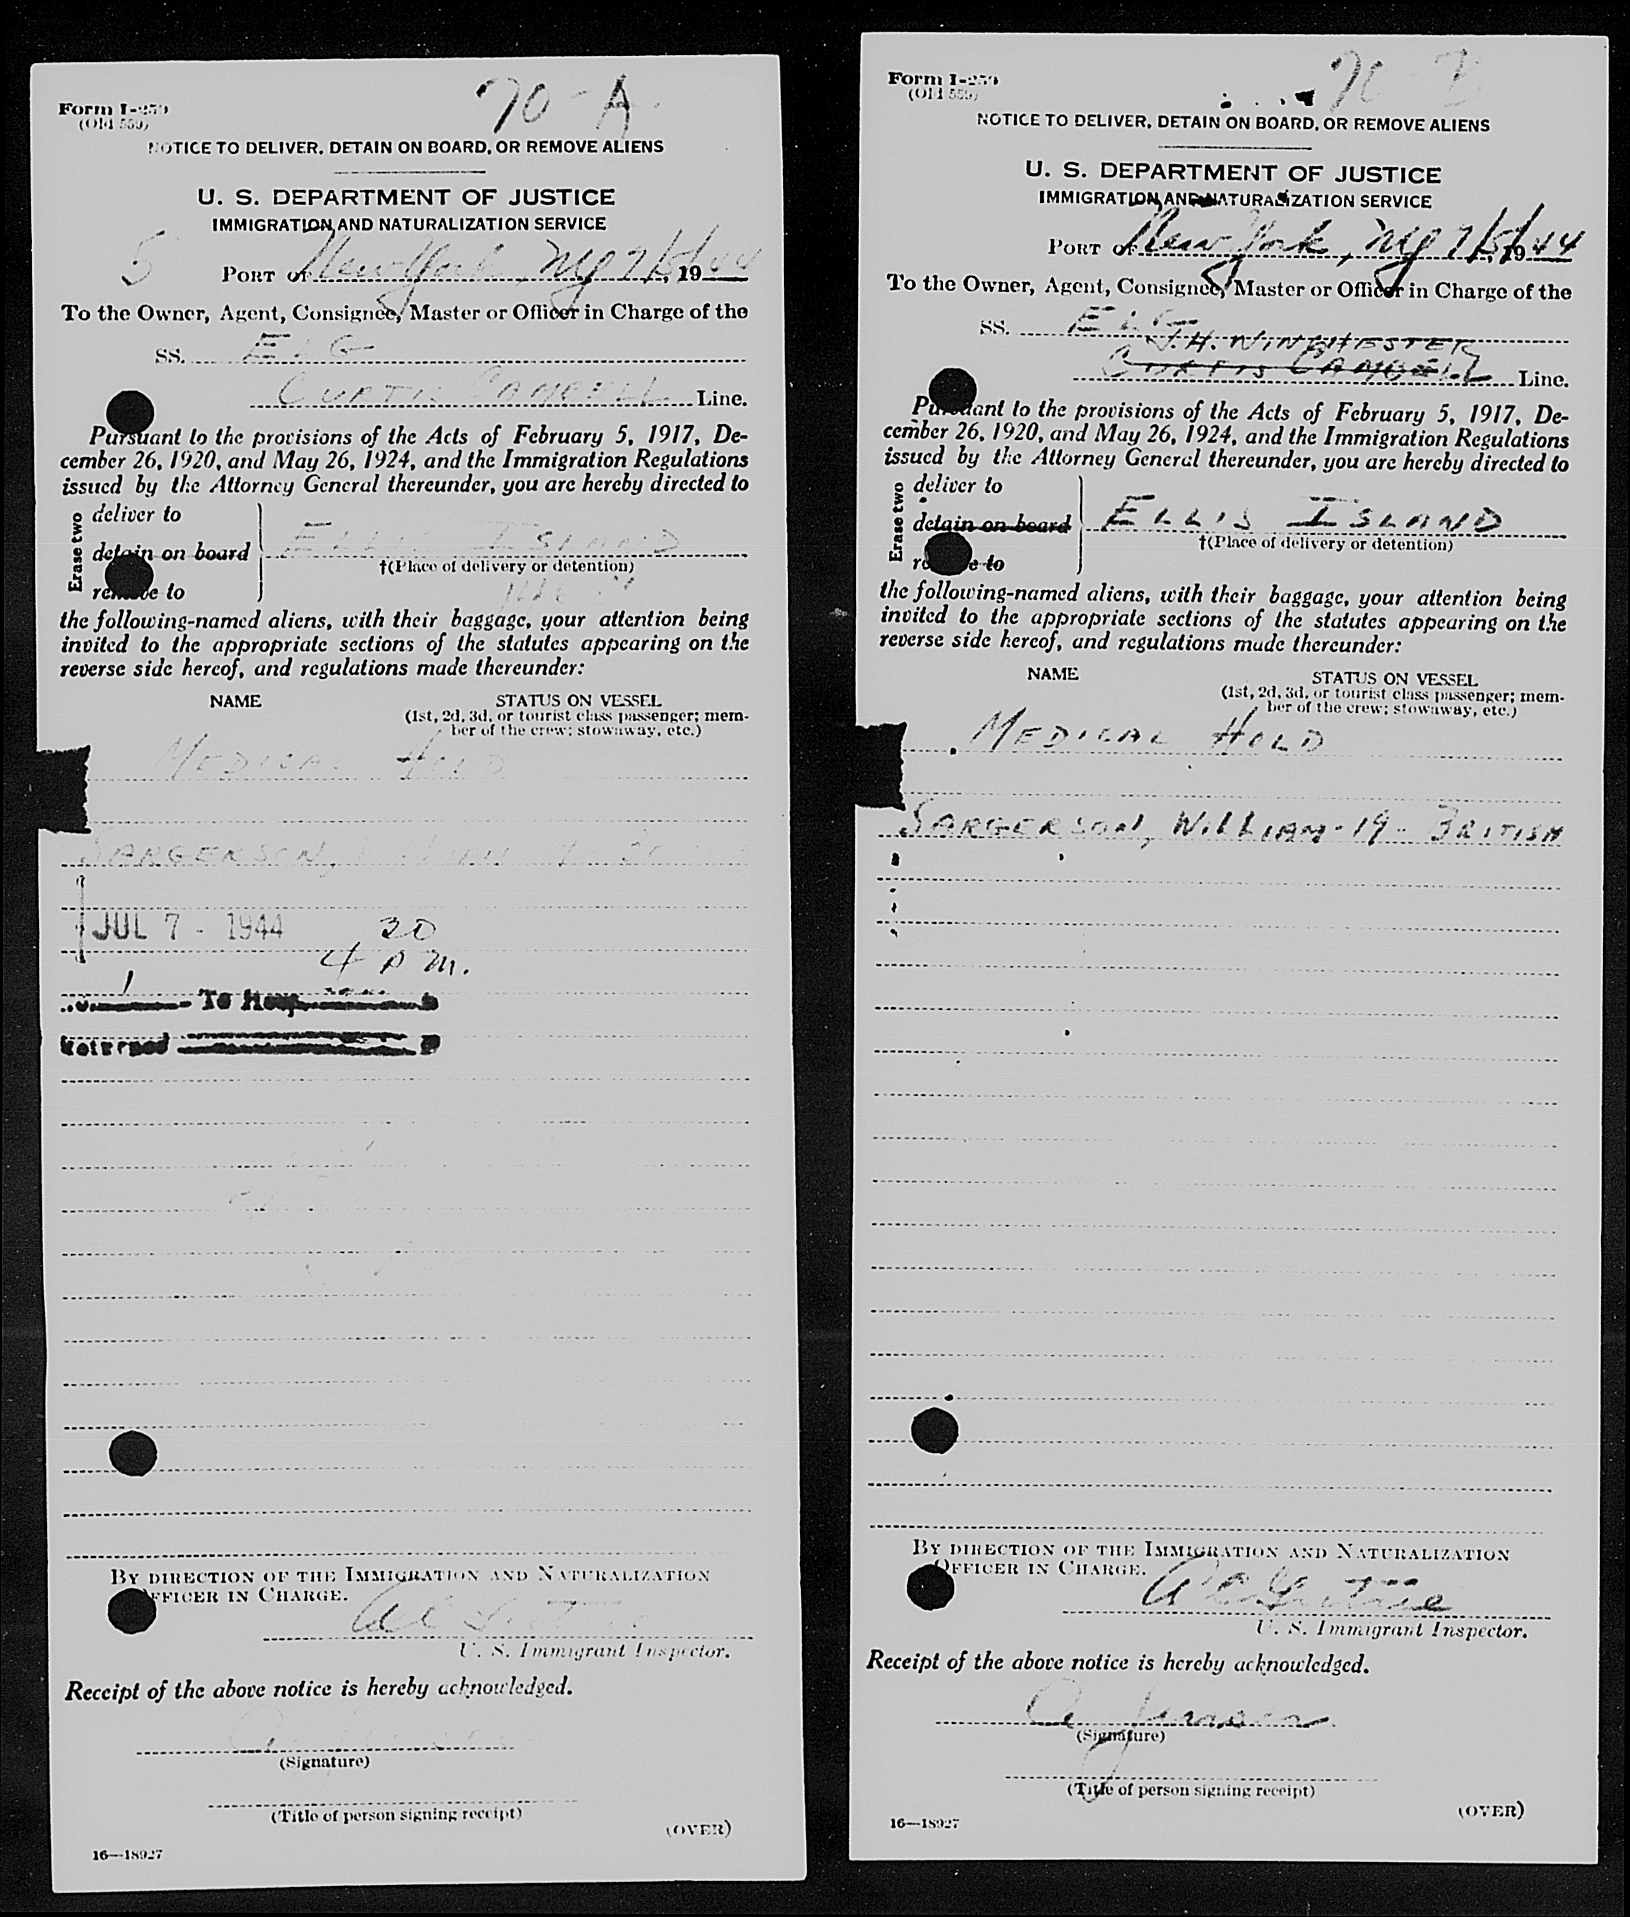 70-A
Form I-259
(Old 559)
NOTICE TO DELIVER, DETAIN ON BOARD, OR REMOVE ALIENS
U. S. DEPARTMENT OF JUSTICE
IMMIGRATION AND NATURALIZATION SERVICE
5
PORT OF New York, NY 7/5/, 1944
To the Owner, Agent, Consignee, Master or Officer in Charge of the
SS. ELG
CURTIS CAMPBELL Line.
Pursuant to the provisions of the Acts of February 5, 1917, De-
cember 26, 1920, and May 26, 1924, and the Immigration Regulations
issued by the Attorney General thereunder, you are hereby directed to
Erase two
deliver to
detain on board
remove to
ELLIS ISLAND
†(Place of delivery or detention)
the following-named aliens, with their baggage, your attention being
invited to the appropriate sections of the statutes appearing on the
reverse side hereof, and regulations made thereunder:
NAME STATUS ON VESSEL
(1st, 2d, 3d, or tourist class passenger; mem-
ber of the crew; stowaway, etc.)
MEDICAL HOLD
SARGERSON,
JUL 7 - 1944 30
4 P M.
1
To Hosp
Returned
BY DIRECTION OF THE IMMIGRATION AND NATURALIZATION
OFFICER IN CHARGE.
U. S. Immigrant Inspector.
Receipt of the above notice is hereby acknowledged.
(Signature)
(Title of person signing receipt)
(OVER)
16—18927
70 B
Form I-259
(Old 559)
NOTICE TO DELIVER, DETAIN ON BOARD, OR REMOVE ALIENS
U. S. DEPARTMENT OF JUSTICE
IMMIGRATION AND NATURALIZATION SERVICE
PORT OF New York, NY 7/5/, 1944
To the Owner, Agent, Consignee, Master or Officer in Charge of the
SS. ELG
J.H. WINCHESTER
CURTIS CAMPBELL Line.
Pursuant to the provisions of the Acts of February 5, 1917, De-
cember 26, 1920, and May 26, 1924, and the Immigration Regulations
issued by the Attorney General thereunder, you are hereby directed to
Erase two
deliver to
detain on board
remove to
ELLIS ISLAND
†(Place of delivery or detention)
the following-named aliens, with their baggage, your attention being
invited to the appropriate sections of the statutes appearing on the
reverse side hereof, and regulations made thereunder:
NAME STATUS ON VESSEL
(1st, 2d, 3d, or tourist class passenger; mem-
ber of the crew; stowaway, etc.)
MEDICAL HOLD
SARGERSON, WILLIAM - 19 - BRITISH
BY DIRECTION OF THE IMMIGRATION AND NATURALIZATION
OFFICER IN CHARGE.
U. S. Immigrant Inspector.
Receipt of the above notice is hereby acknowledged.
(Signature)
(Title of person signing receipt)
(OVER)
16—18927